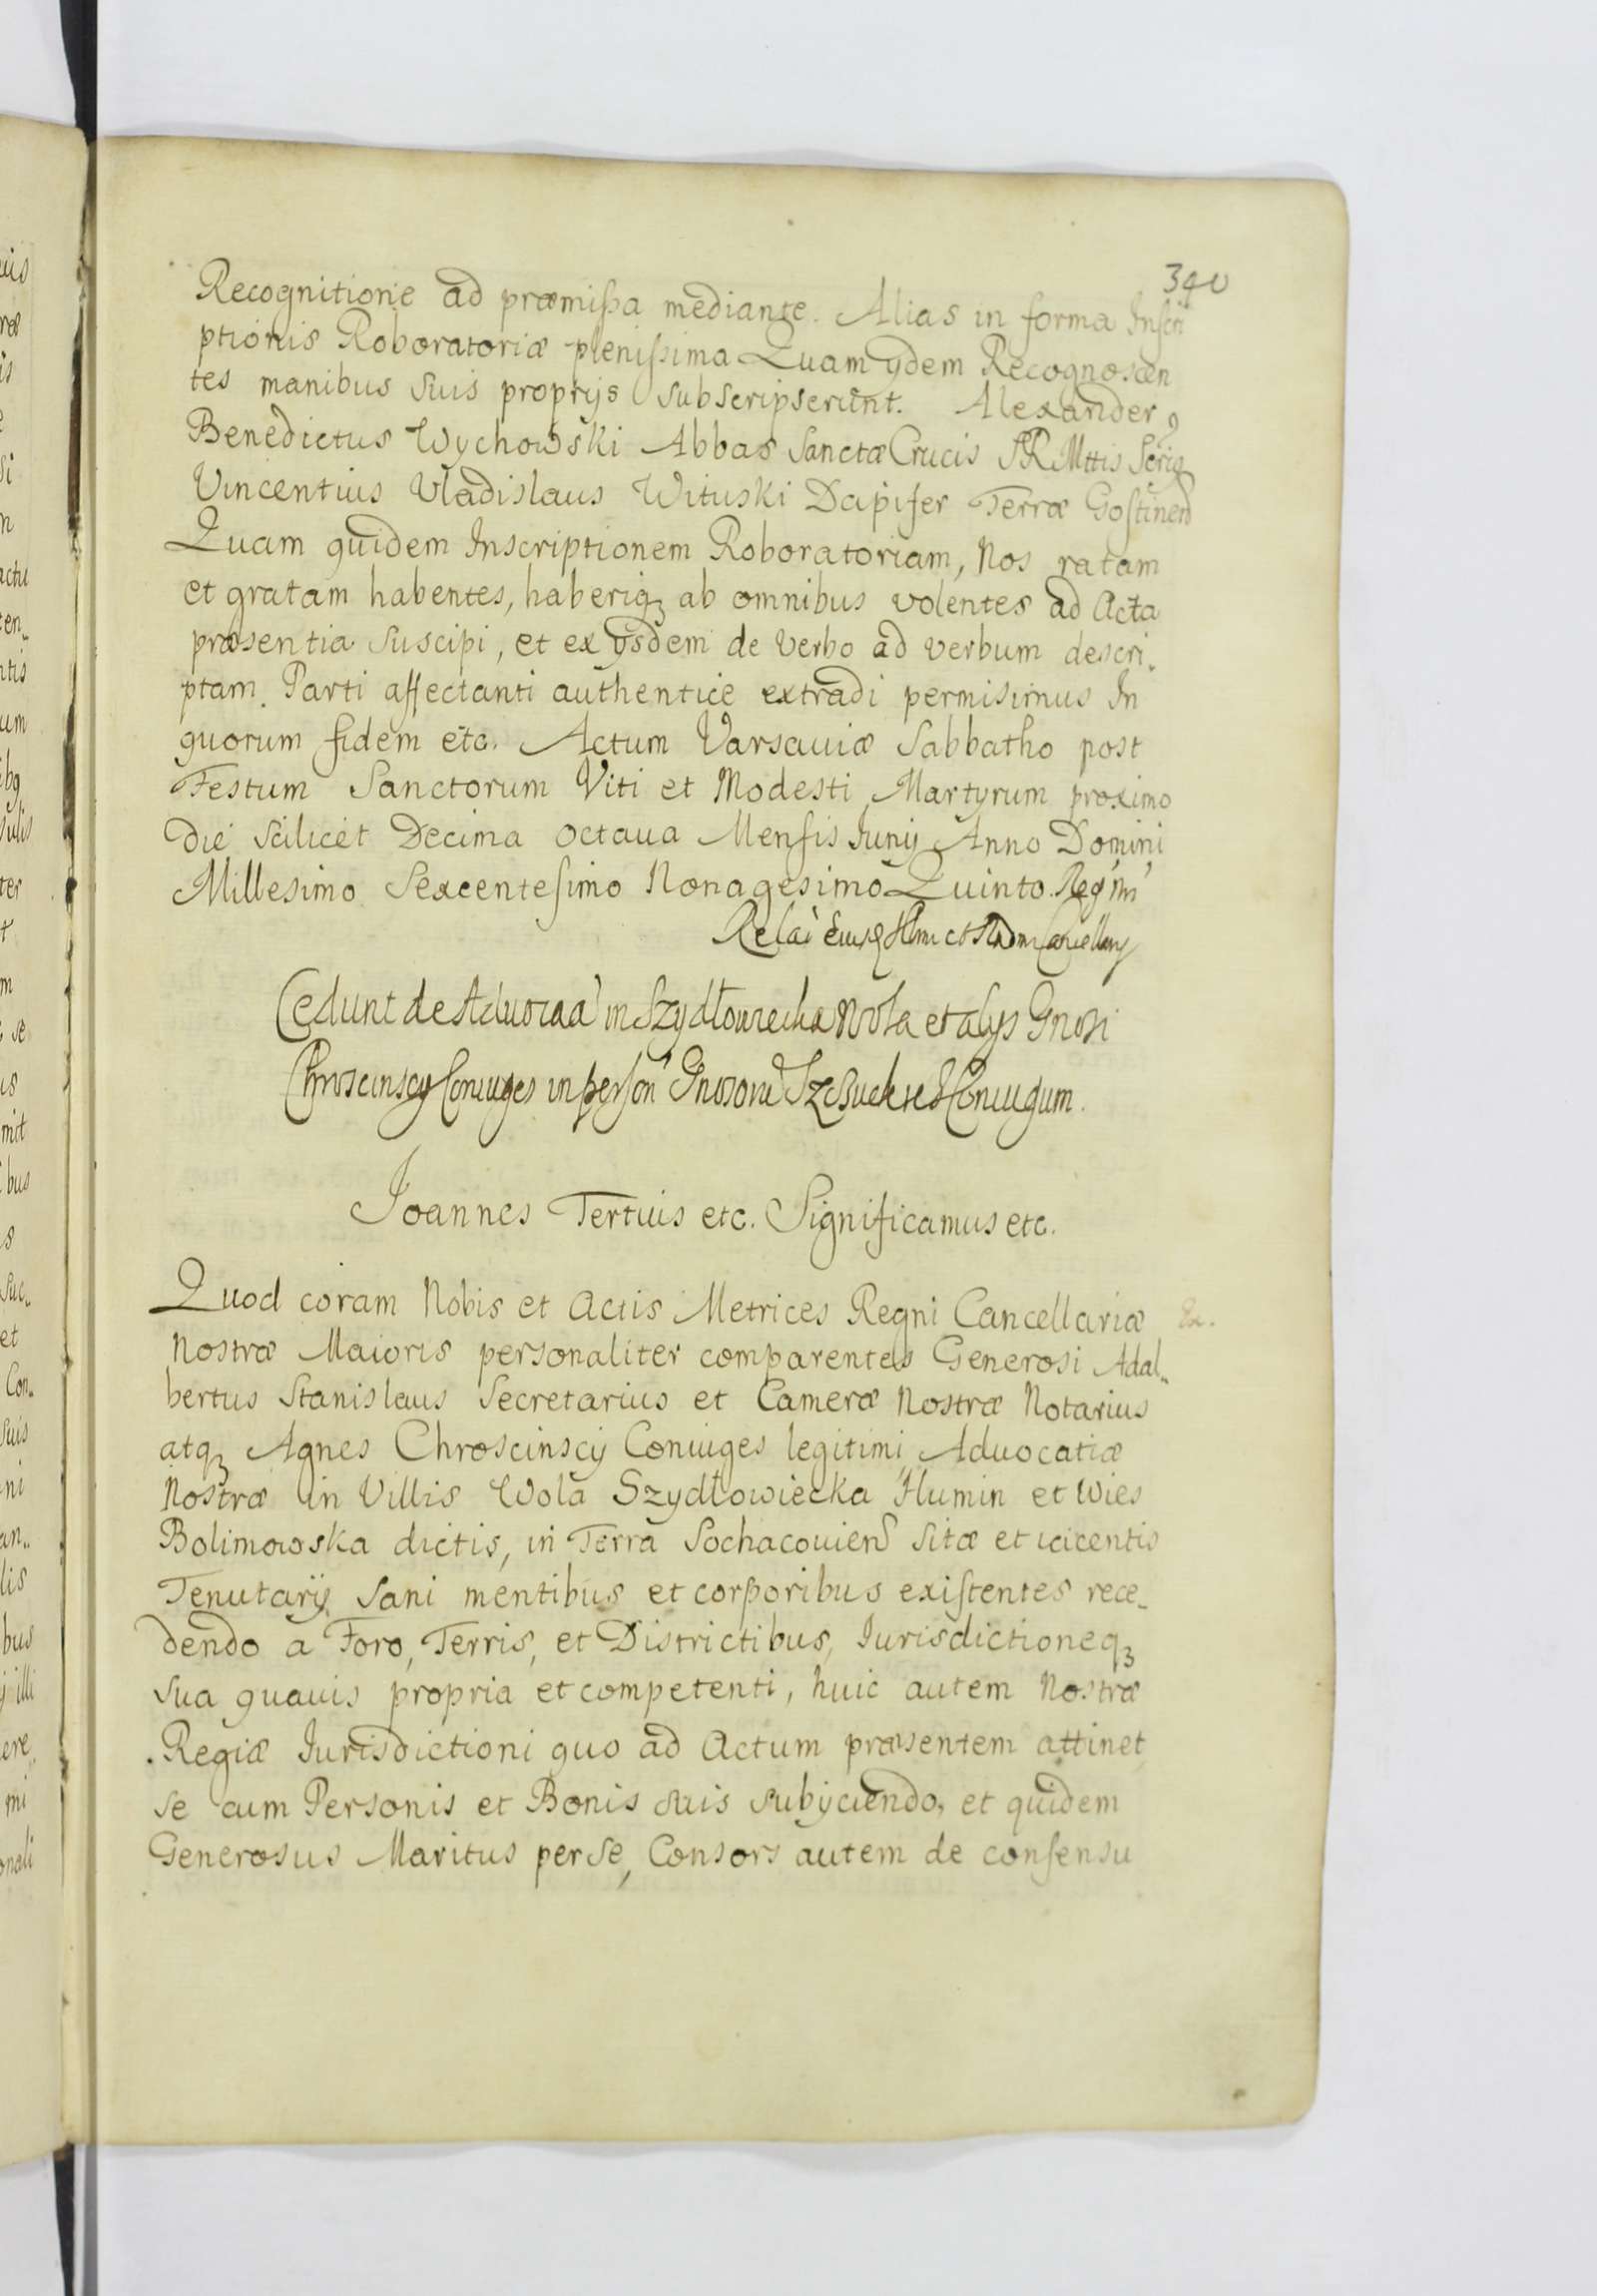 340
Recognitione ad præmissa mediante. Alias in forma Inscri
ptionis Roboratoriæ plenissima Quam ydem Recognoscen
tes manibus suis proprys subscripserunt. Alexander
Benedictus Wychowski Abbas Sanctæ Crucis SRMttis
Vincentius Vladislaus Wituski Dapifer Terræ Gostinen
Quam quidem Inscriptionem Roboratoriam, Nos ratam
et gratam habentes, haberiq3 ab omnibus volentes ad Acta
præsentia suscipi, et ex ysdem de verbo ad verbum descri„
ptam. Parti affectanti authentice extradi permisimus In
quorum fidem etc. Actum Varsauiæ Sabbatho post
Festum Sanctorum Viti et Modesti Martyrum proximo
die scilicet Decima octaua Mensis Iunij Anno Domini
Millesimo Sexcentesimo Nonagesimo Quinto.
Cedunt de in Szydłowiecka Wola et alys Gnosi
Chroscinscy Coniuges in person Coniugum.
Joannes Tertius etc. Significamus etc.
Quod coram Nobis et Actis Metrices Regni Cancellariæ
Nostræ Maioris personaliter comparentes Generosi Adal„
bertus Stanislaus Secretarius et Cameræ Nostræ Notarius
atq3 Agnes Chroscinscy Coniuges legitimi Aduocatiæ
Nostræ in Villis Wola Szydłowiecka Humin et Wies
Bolimowska dictis, in Terra Sochacouien sitæ et iacentis
Tenutarij Sani mentibus et corporibus existentes rece„
dendo a Foro, Terris, et Districtibus, Iurisdictioneq3
sua quauis propria et competenti, huic autem Nostræ
Regiæ Iurisdictioni quo ad Actum præsentem attinet
se cum Personis et Bonis suis subyciendo, et quidem
Generosus Maritus per se, Consors autem de consensu